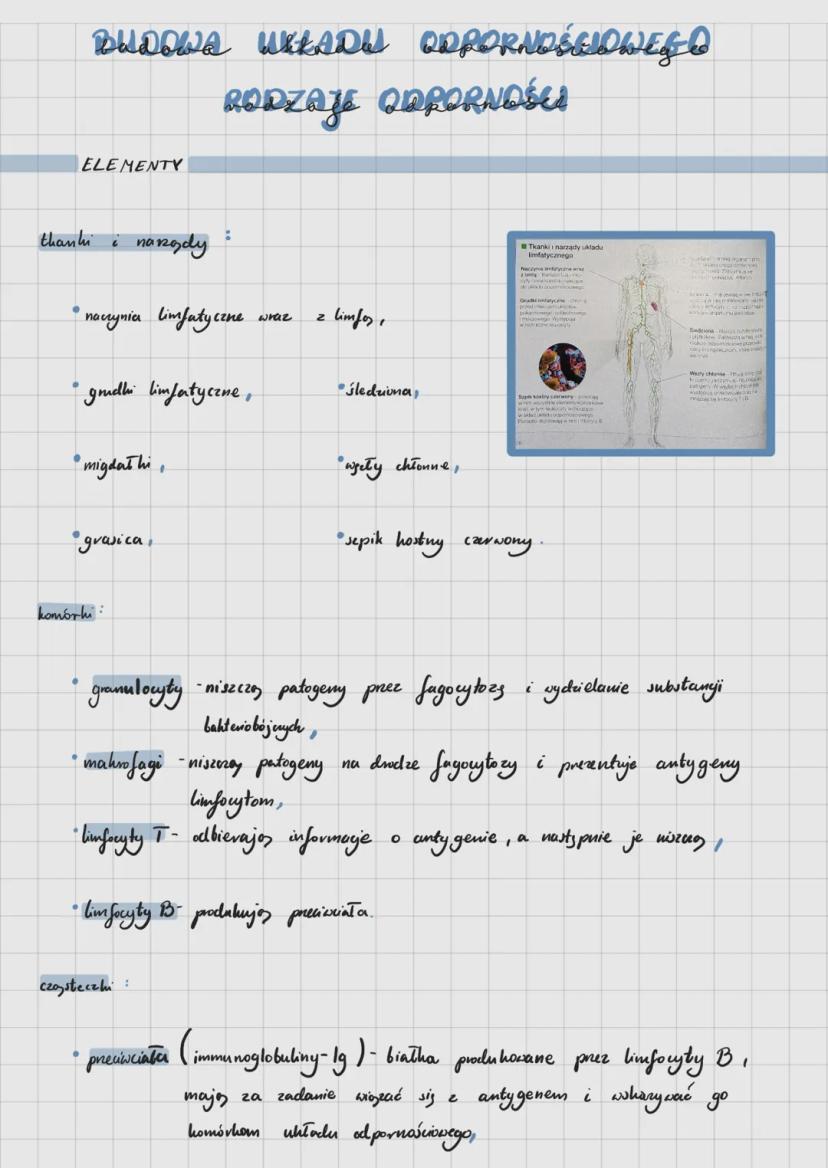 BUDOWA UKŁADU ODPORNOŚCIOWEGO
budowa układu odpornościowego
RODZAJE ODPORNOŚCI
rodzaje odporności
ELEMENTY
tkanki i narządy :
• naczynia limfatyczne wraz z limfą,
• grudki limfatyczne,
• śledziona,
• migdałki,
• węzły chłonne,
• grasica,
• szpik kostny czerwony.
Tkanki i narządy układu
limfatycznego
Naczynia limfatyczne wraz
z limfą
Grudki limfatyczne
Śledziona
Węzły chłonne
Szpik kostny czerwony
komórki:
• granulocyty - niszczą patogeny przez fagocytozę i wydzielanie substancji
bakteriobójczych,
• makrofagi - niszczą patogeny na drodze fagocytozy i prezentuje antygeny
limfocytom,
• limfocyty T - odbierają informacje o antygenie, a następnie je niszczą,
• limfocyty B - produkują przeciwciała.
cząsteczki :
• przeciwciała (immunoglobuliny - Ig) - białka produkowane przez limfocyty B,
mają za zadanie wiązać się z antygenem i wskazywać go
komórkom układu odpornościowego,